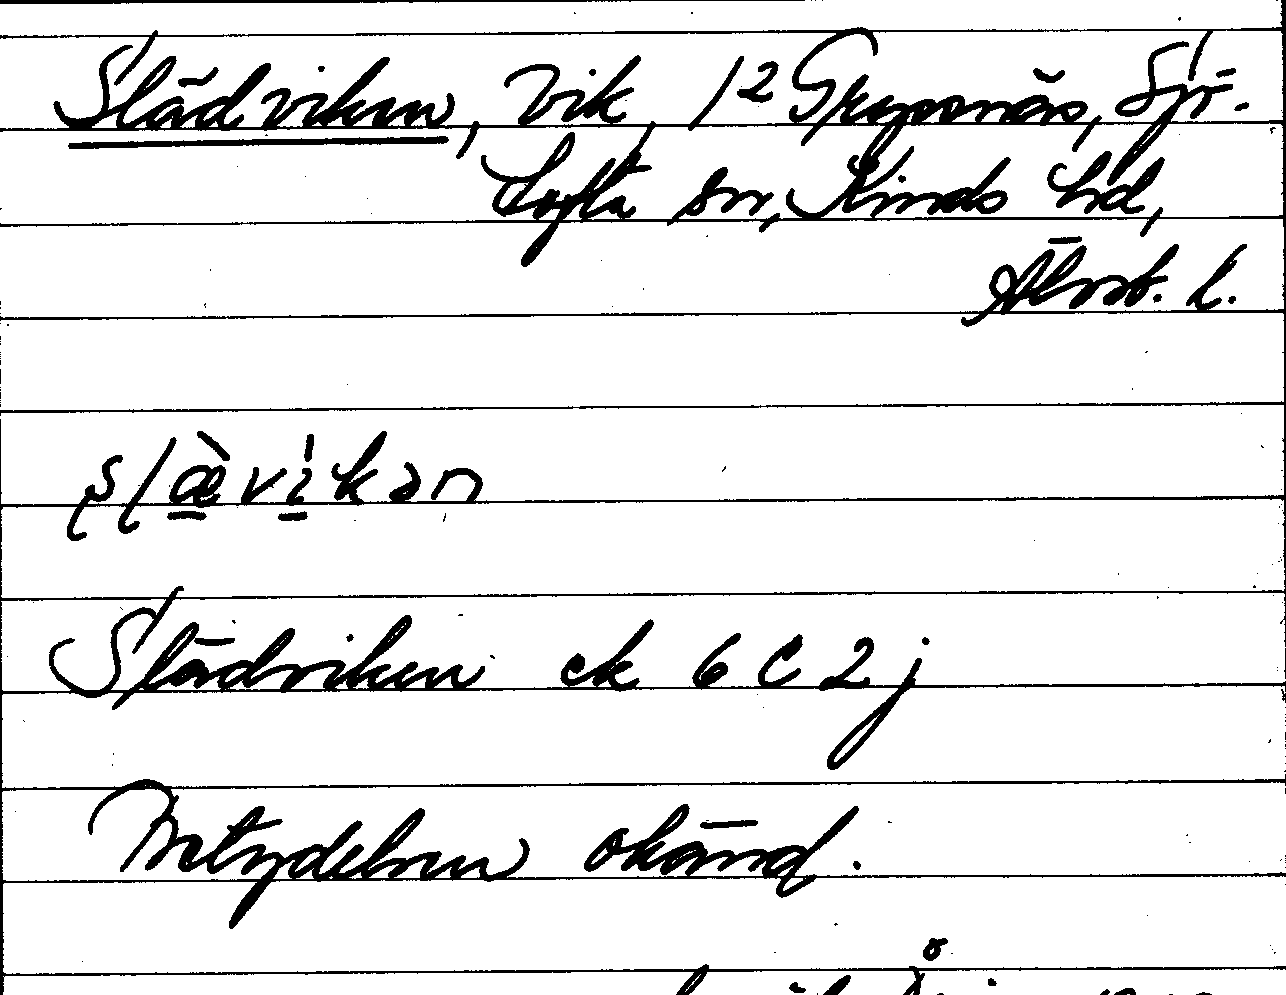 Slädviken, Vik, 1² Grytnäs, Sjö-
tofta sn, Kinds hd,
Älvsb. l.
Slädviken ek 6 C 2 j
Betydelsen okänd.